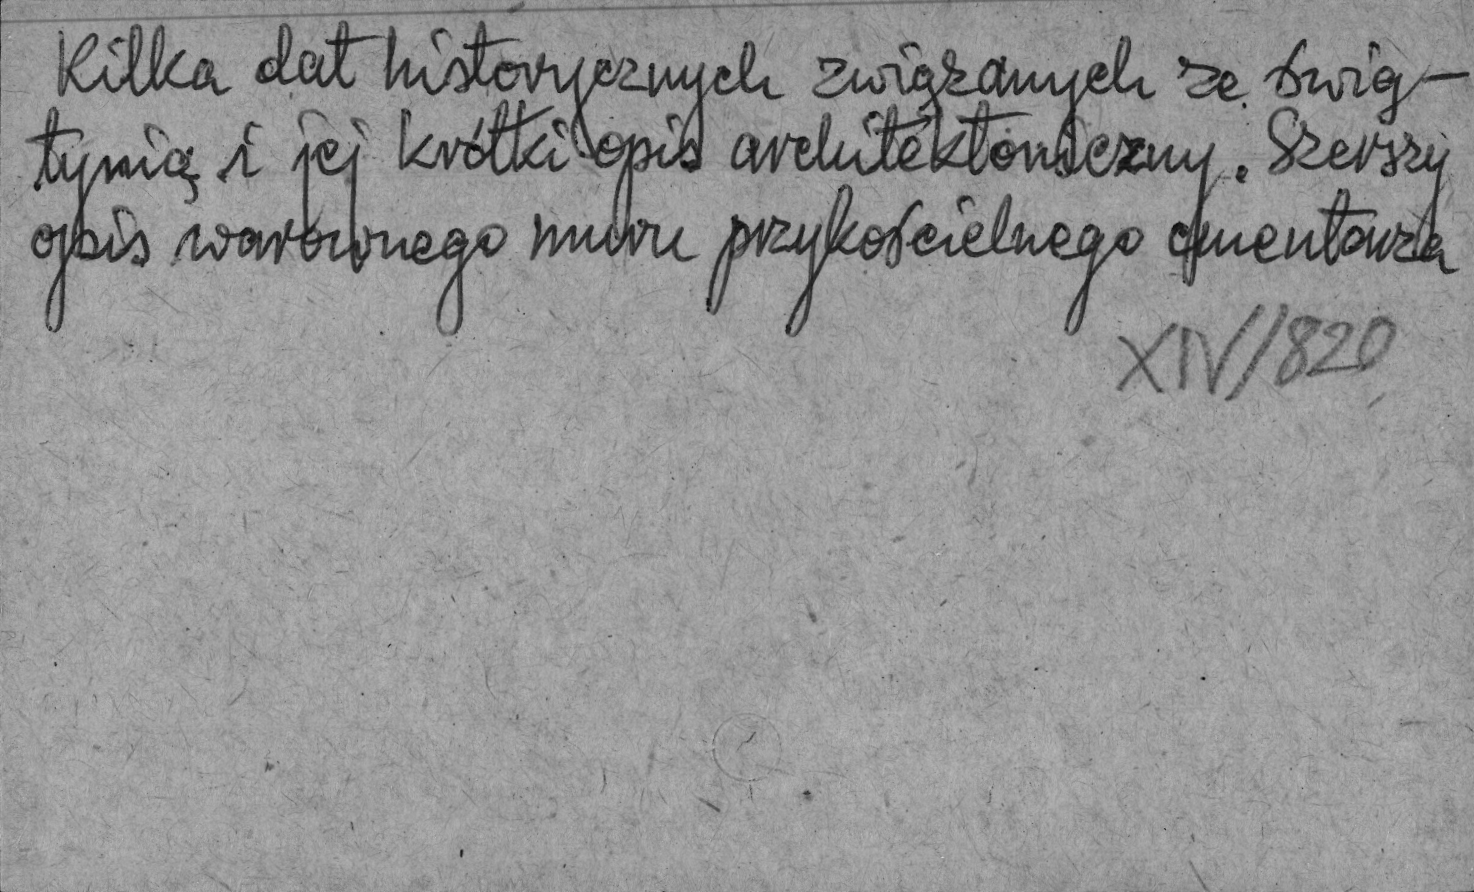 Kilka dat historycznych związanych ze świą-
tynią i jej krótki opis architektoniczny. Szerszy
opis warownego muru przykościelnego cmentarza
XIV/820